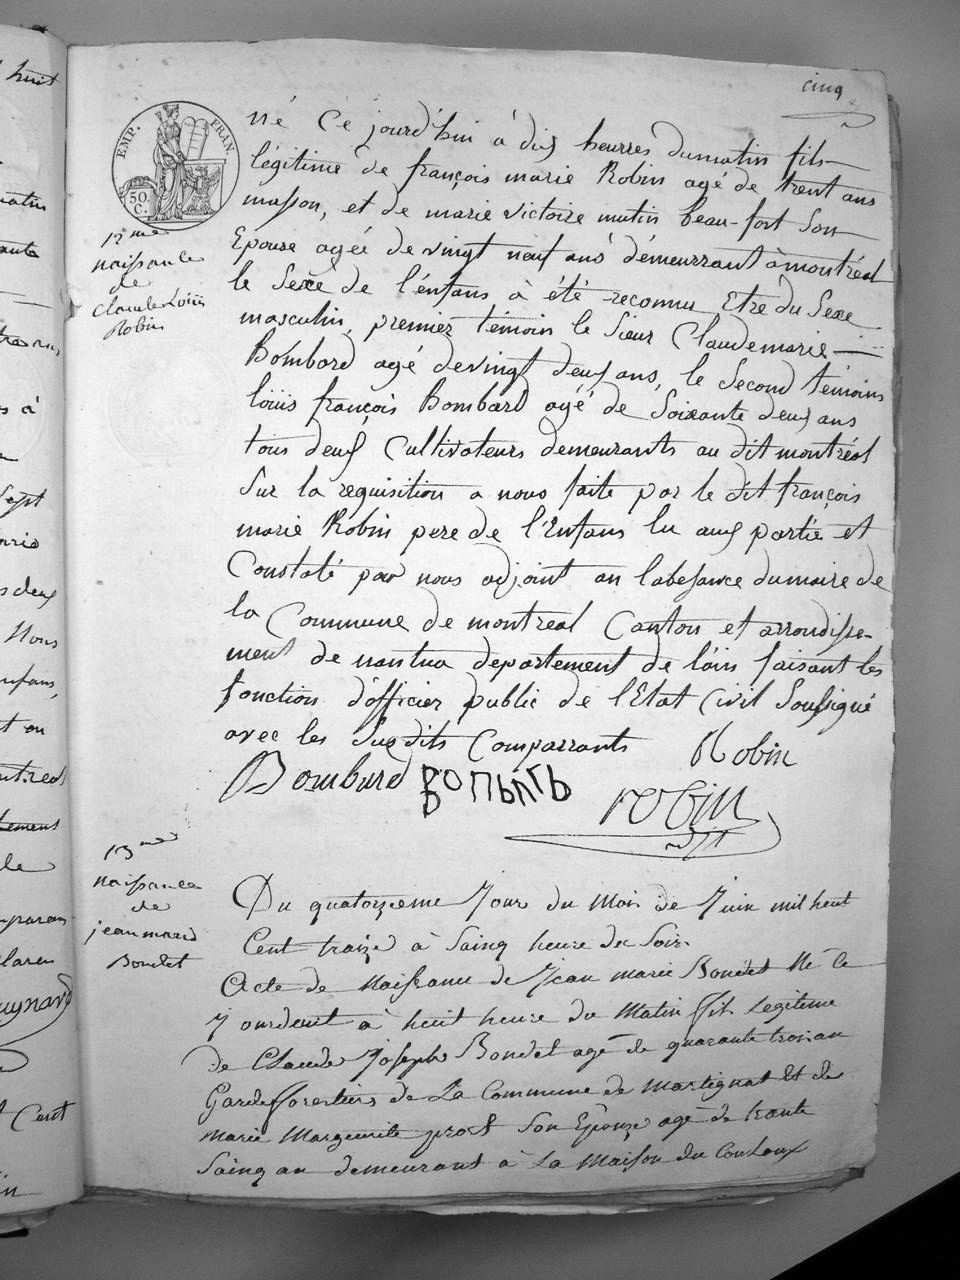 huit
cinq
EMP. FRAN.
50. C.
12me
naissance
de
Claude Loüis
Robin
né Ce jourd'huy à dix heurres dumatin fils
légitime de françois marie Robin agé de trent ans
masson, et de marie victoire mutin beau-fort Son
Epouse agée de vingt neuf ans démeurrant à montréal
le Sexe de l'énfans à été reconnu Etre du Sexe
masculin, premier témoin le Sieur Claudemarie
Bombard agé devingt deux ans, le Second témoins
loüis françois Bombard agé de Soixante deux ans
tous deux Cultivateurs demeurants au dit montréal
Sur la requisition a nous faite par le dit françois
marie Robin pere de l'Enfans lu aux partie et
Constaté par nous adjoint en l'abesance dumaire de
la Commune de montreal Canton et arrondisse-
ment de nantua departement de l'ain faisant les
fonction d'officier public de l'Etat Civil Soussigné
avec les Susdits Comparrants Robin
Bombard robin
adjt
13me
naissance
de
jean marie
Bondet
Du quatorzieme Jour du Mois de Juin mil heut
Cent traize à Sainq heure du Soir.
Acte de Naissance de Jean marie Bondet Né Ce
Jourdeuit à heuit heure du Matin fils Legitime
de Claude Joseph Bondet agé de quarante trois an
Garde forestiers de La Commune de Martignat Et de
Marie Marguerite prost Son Epouze agé de trante
Sainq an demeurant à La Maison du